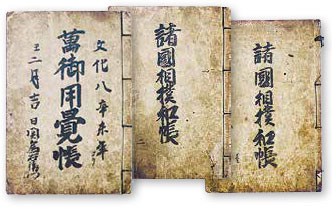 文化八辛未年
萬御用覺帳
二月吉日
諸國相撲扣帳
諸國相撲扣帳